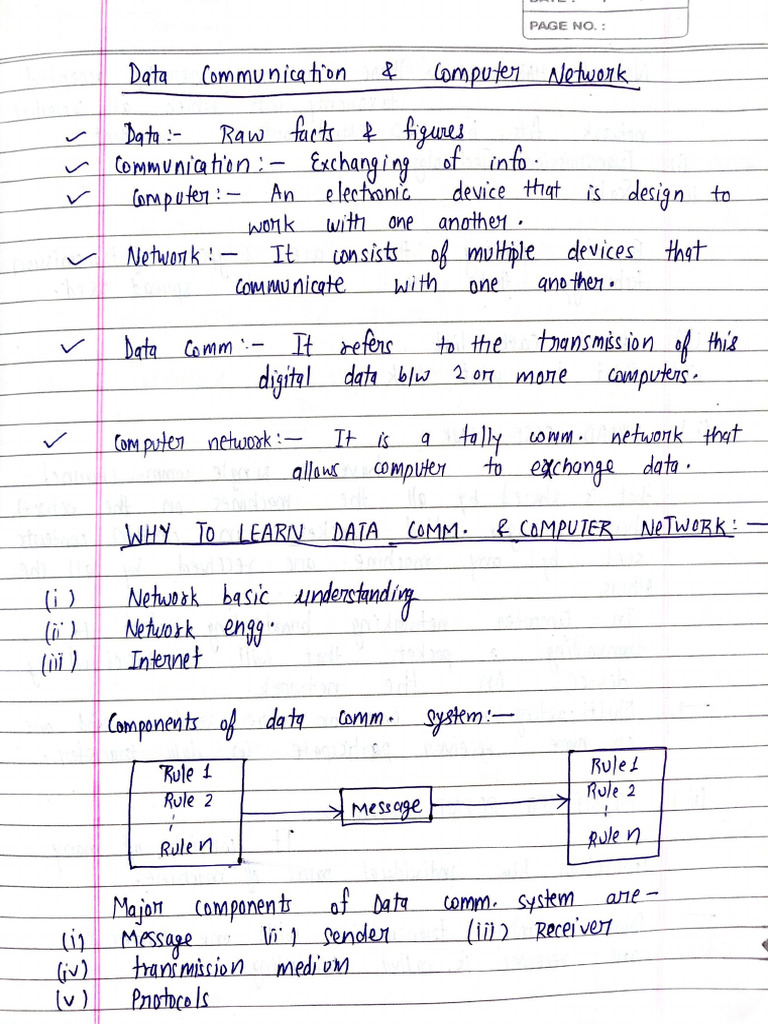 PAGE NO. :
Data Communication & Computer Network
Data:- Raw facts & figures
Communication:- Exchanging of info.
Computer:- An electronic device that is design to
work with one another.
Network:- It consists of multiple devices that
communicate with one another.
Data Comm:- It refers to the transmission of this
digital data b/w 2 or more computers.
Computer network:- It is a tally comm. network that
allows computer to exchange data.
WHY TO LEARN DATA COMM. & COMPUTER NETWORK:-
(i) Network basic understanding
(ii) Network engg.
(iii) Internet
Components of data comm. system:-
Rule 1
Rule 2
Rule n
Message
Rule 1
Rule 2
Rule n
Major components of Data comm. system are-
(i) Message (ii) sender (iii) Receiver
(iv) transmission medium
(v) Protocols